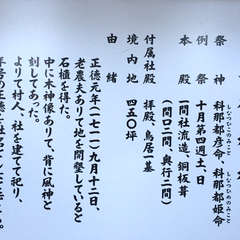 祭神 科那都彦命、科那都姫命
しなつひこのみこと しなつひめのみこと
例祭 十月第四週土、日
本殿 一間社流造、銅板葺
(間口二間、奥行二間)
付属社殿 拝殿、鳥居一基
境内地 四五〇坪
由緒
正徳元年(一七一一)九月十二日、
老農夫ありて地を開墾していると
石櫃を得た。
中に木神像ありて、背に風神と
刻してあった。
よりて村人、社を建てて祀り、